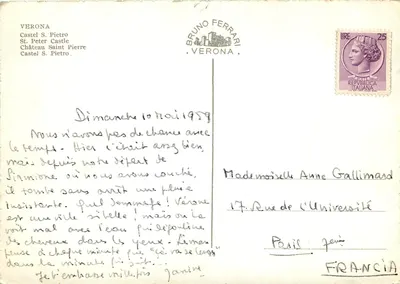 VERONA
Castel S. Pietro
St. Peter Castle
Château Saint Pierre
Castel S. Pietro
BRUNO FERRARI
VERONA
LIRE 25
REPUBBLICA
ITALIANA
Dimanche 10 Mai 1959
Nous n'avons pas de chance avec
le temps. Hier c'était assez bien,
mais depuis notre départ de
Sirmione où nous avons couché,
il tombe sans arrêt une pluie
insistante. Quel dommage! Vérone
est une ville si belle! mais on la
voit mal avec l'eau qui dégouline
de cheveux dans les yeux.
pense à chaque minute que
dans la minute qui suit...
Je t'embrasse mille fois
Mademoiselle Anne Gallimard
17 Rue de l'Université
Paris
FRANCIA